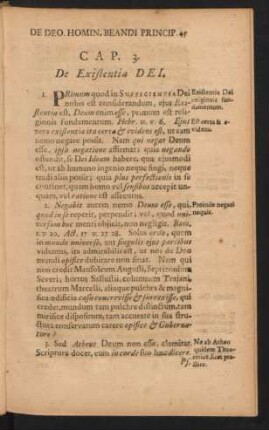 DE DEO. HOMIN. BEANDI PRINCIP. 47
CAP. 3.
De Existentia DEI.
1. PRimum quod in SUFFICIENTIA Dei
nobis est considerandum, ejus Exi-
stentia est, Deum enim esse, primum est reli-
gionis fundamentum. Hebr. 11. v. 6. Ejus
vero existentia ita certa & evidens est, ut eam
homo negare possit. Nam qui negat Deum
esse, ipsâ negatione affirmat: quia negando
ostendit, se Dei Ideam habere, quæ ejusmodi
est, ut ab humano ingenio neque singi, neque
tradi potuerit; quia plus perfectionis in se
continet, quam homo vel sensibus accepit un-
quam, vel ratione cognovit.
2. Negabit autem nemo Deum esse, qui,
quod in se reperit, perpendit; vel, quod uni-
versim hæc menti objicit, non negligit. Rom.
1. v. 20. Act. 17. v. 27. 28. Solus ordo, quem
in mundo universo, ut singulis ejus partibus
videmus, ita admirabilis est, ut nos de Deo
mundi opifice dubitare non sinat. Nam qui
non credit Mausoleum Augusti, Septizonium
Severi, hortos Sallustii, columnam Trojani,
theatrum Marcelli, aliaque pulchra & magni-
fica ædificia casu concrevisse & fortè esse, qui
credat, mundum tam pulchre distinctum, tam
mirifice dispositum, tam exactè in sua stru-
ctura conservatum carere opifice & Guberna-
tore?
3. Sed Atheus Deum non esse, clamitat.
Scriptura docet, eum in corde suo hoc dicere.
Existentia Dei
religionis fun-
damentum.
Est certa & e-
videns.
Probatio negati
negatè.
Ne ab Atheo
quidem Theo-
retice